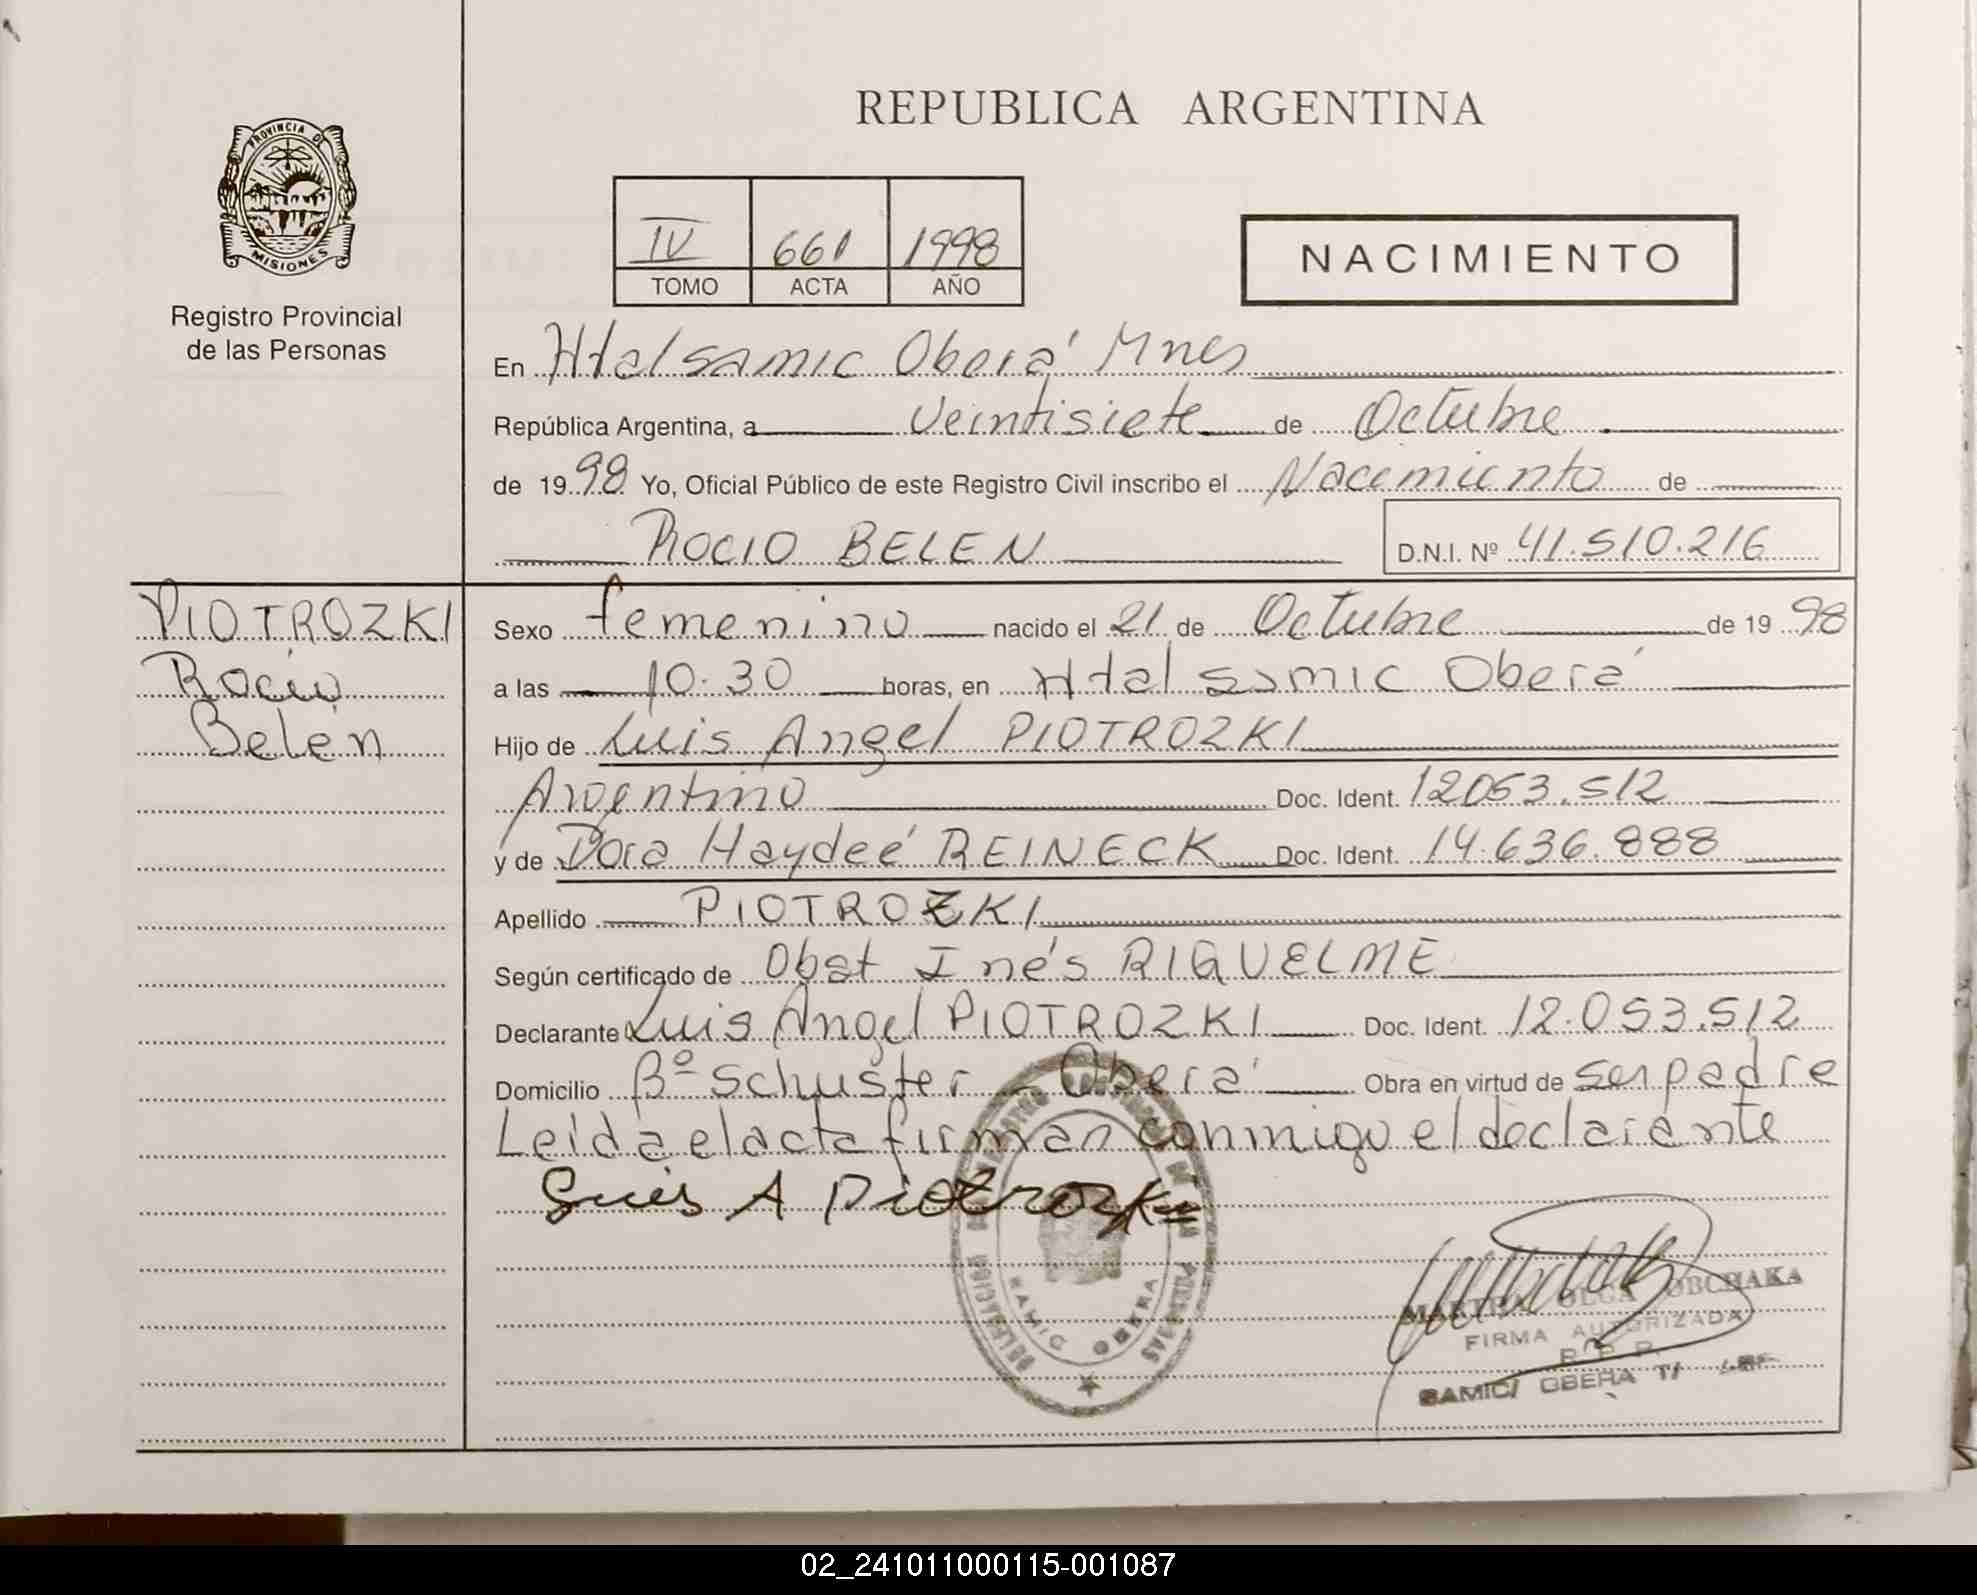 REPUBLICA ARGENTINA
PROVINCIA DE
MISIONES
Registro Provincial
de las Personas
IV 661 1998
TOMO ACTA AÑO
NACIMIENTO
En Htal samic Oberá Mnes
República Argentina, a Veintisiete de Octubre
de 1998 Yo, Oficial Público de este Registro Civil inscribo el Nacimiento de
ROCIO BELEN D.N.I. Nº 41.510.216
PIOTROZKI
Rocío
Belén
Sexo femenino nacido el 21 de Octubre de 1998
a las 10.30 horas, en Htal samic Oberá
Hijo de Luis Angel PIOTROZKI
Argentino Doc. Ident. 12053.512
y de Dora Haydeé REINECK Doc. Ident. 14.636.888
Apellido PIOTROZKI
Según certificado de Obst Inés RIQUELME
Declarante Luis Angel PIOTROZKI Doc. Ident. 12.053.512
Domicilio Bº Schuster - Oberá Obra en virtud de ser padre
Leida el acta firman conmigo el declarante
Luis A Piotrozki
DELEGACION
SAMIC OBERA
MARTHA OLGA
FIRMA AUTORIZADA
R. P. P.
SAMIC/ OBERA
02_241011000115-001087